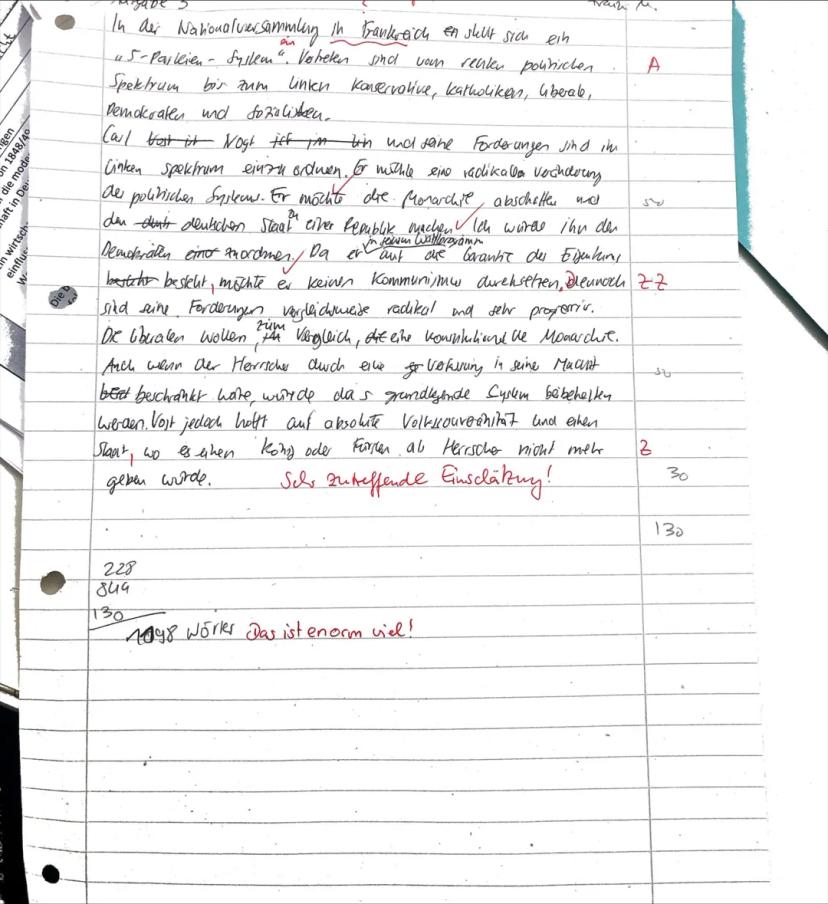 In der Nationalversammlung in Frankreich entstellt sich ein
"5-Parteien-System". Vertreten sind vom rechten politischen A
Spektrum bis zum linken Konservative, Katholiken, Liberale,
Demokraten und Sozialisten.
Carl Vogt und seine Forderungen sind im
linken Spektrum einzuordnen. Er möchte eine radikale Veränderung
des politischen Systems. Er möchte die Monarchie abschaffen und 50
den deutschen Staat zu einer Republik machen. Ich würde ihn den
Demokraten zuordnen. Da er in seinem Wahlprogramm auf die Garantie des Eigentums
besteht, möchte er keinen Kommunismus durchsetzen. Dennoch Z Z
sind seine Forderungen vergleichsweise radikal und sehr progressiv.
Die Liberalen wollen, zum Vergleich, eine konstitutionelle Monarchie.
Auch wenn der Herrscher durch eine Verfassung in seine Macht 50
beschränkt wäre, würde das grundlegende System beibehalten
werden. Vogt jedoch hofft auf absolute Volkssouveränität und einen
Staat, wo es einen König oder Fürsten als Herrscher nicht mehr Z
geben würde. Sehr zutreffende Einschätzung! 30
130
228
130
1098 Wörter Das ist enorm viel!